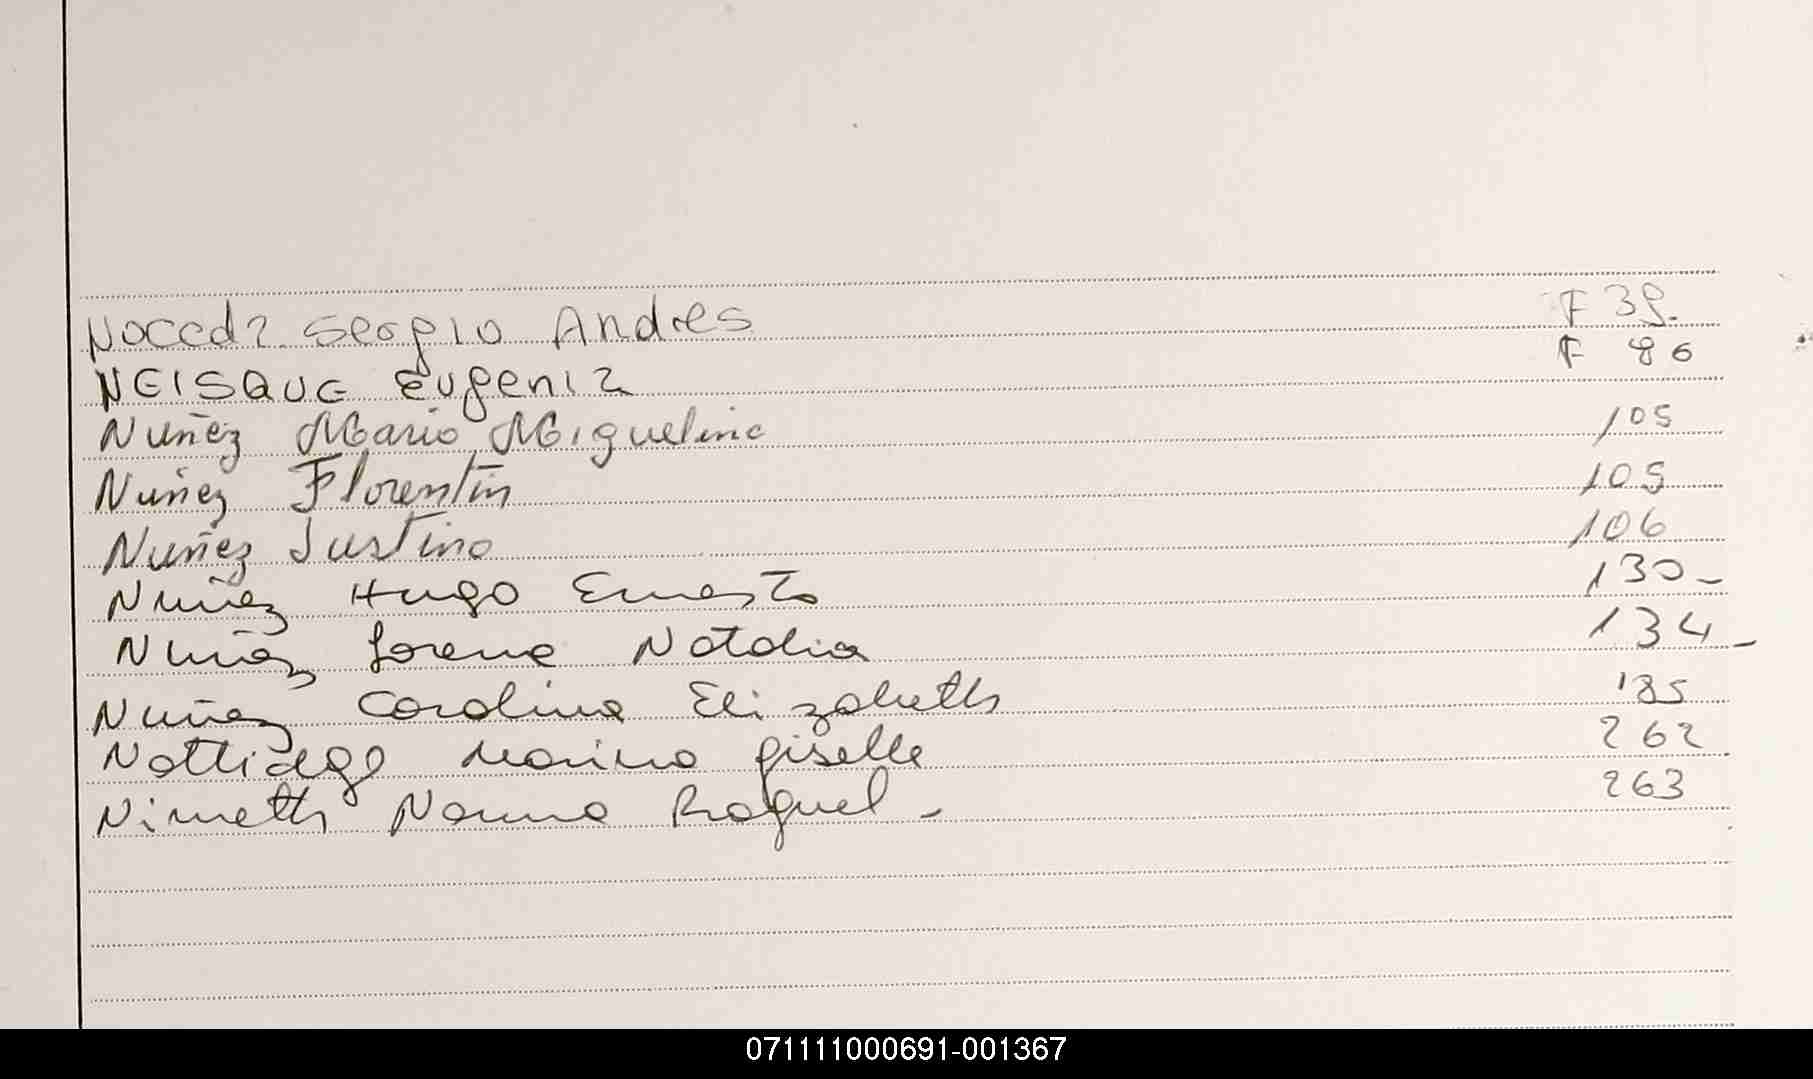 Noceda Sergio Andres F 39.
NEISQUE Eugenia F 86
Nuñez Mario Miguelino 105
Nuñez Florentin 105
Nuñez Justino 106
Nuñez Hugo Ernesto 130-
Nuñez Lorena Natalia 134-
Nuñez Carolina Elizabeth 185
Marina Giselle 262
Nimeth Norma Raquel - 263
071111000691-001367